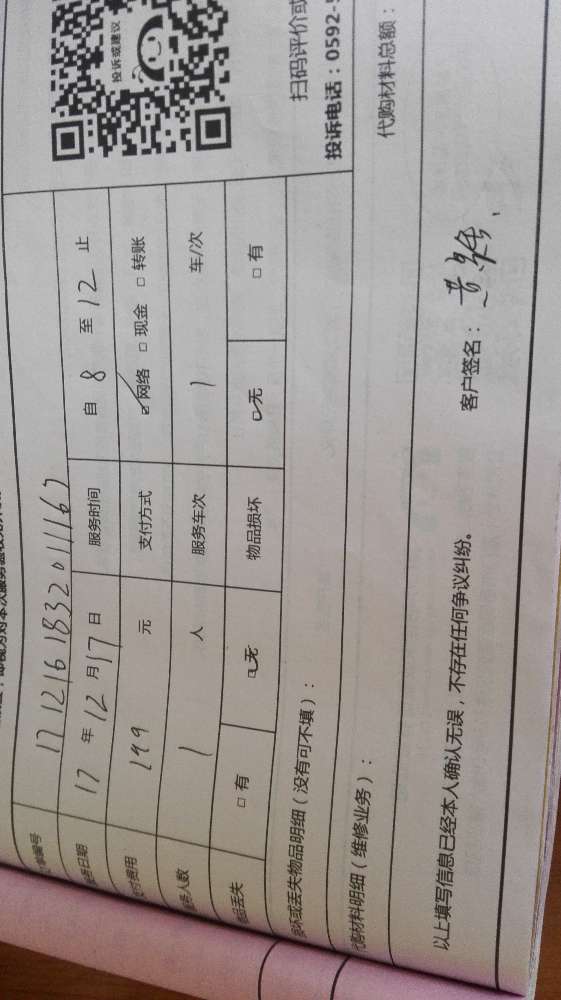 投诉或建议
扫码评价或
投诉电话：0592-5
单编号 17121618320111167
服务日期 17 年 12 月 17 日 服务时间 自 8 至 12 止
支付费用 199 元 支付方式 ☑ 网络 □ 现金 □ 转账
服务人数 1 人 服务车次 1 车/次
物品丢失 □ 有 ☑ 无 物品损坏 ☑ 无 □ 有
损坏或丢失物品明细（没有可不填）：
代购材料明细（维修业务）： 代购材料总额：
以上填写信息已经本人确认无误，不存在任何争议纠纷。 客户签名：